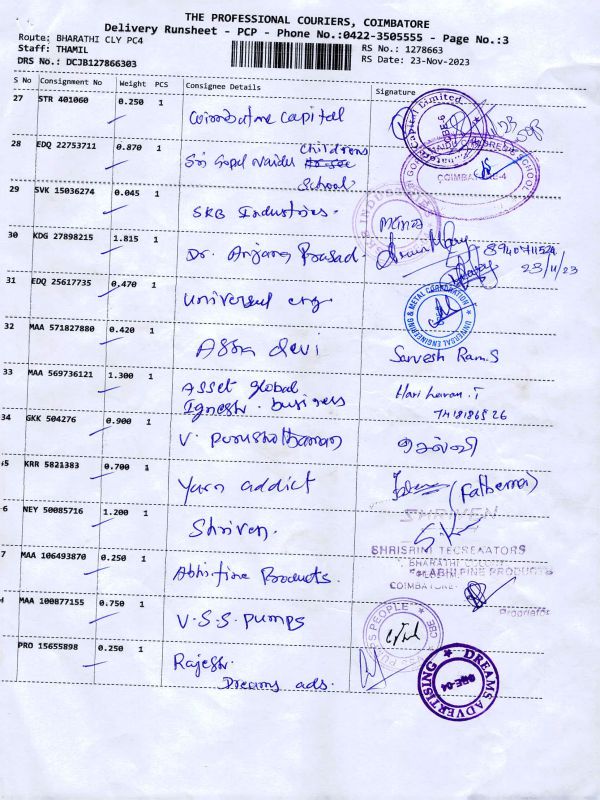 THE PROFESSIONAL COURIERS, COIMBATORE
Delivery Runsheet - PCP - Phone No.:0422-3505555 - Page No.:3
Route: BHARATHI CLY PC4
RS No.: 1278663
Staff: THAMIL
RS Date: 23-Nov-2023
DRS No.: DCJB127866303
S No Consignment No Weight PCS Consignee Details Signature
27 STR 401060 0.250 1 Coimbatore Capital
28 EDQ 22753711 0.870 1 Sri Gopal Naidu Childrens
School
COIMBATORE-4
29 SVK 15036274 0.045 1 SKB Industries.
30 KDG 27898215 1.815 1 Dr. Anjana Prasad
23/11/23
31 EDQ 25617735 0.470 1 Universal eng
UNIVERSAL ENGINEERING & METAL CORPORATION
32 MAA 571827880 0.420 1 Assa devi Sarvesh Ram.S
33 MAA 569736121 1.300 1 Asset global Hari haran.T
business
34 GKK 504276 0.900 1 V. Purushothaman செல்வி
35 KRR 5821383 0.700 1 Yarn addict
6 NEY 50085716 1.200 1 Shriven.
SHRIVEN
SHRISRINI TECREAATORS
7 MAA 106493870 0.250 1 Abhifine Products.
For ABHI FINE PRODUCTS
COIMBATORE-
Proprietor
MAA 100877155 0.750 1 V.S.S. Pumps
PRO 15655898 0.250 1 Rajesh.
Dreams ads.
DREAMS ADVERTISING
CBE-04